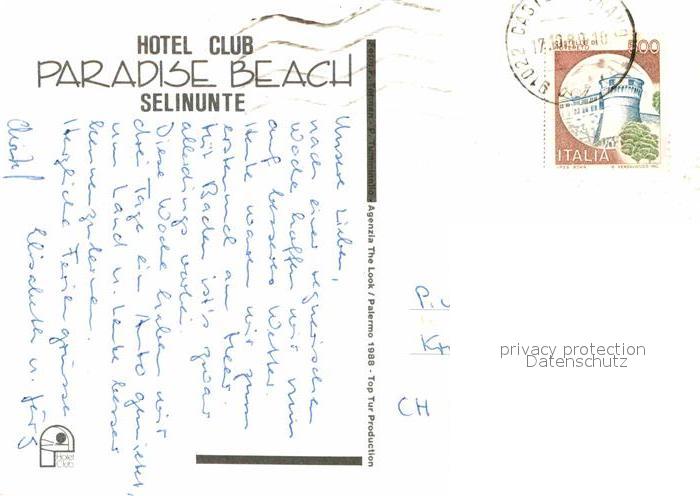 HOTEL CLUB
PARADISE BEACH
SELINUNTE
Unsere Lieben,
nach einer regnerischen
Woche hoffen wir nun
auf besseres Wetter.
Heute waren wir zum
erstenmal am Meer.
Mit Baden ist's zwar
allerdings vorbei.
Diese Woche haben wir
drei Tage ein Auto gemietet,
um Land u. Leute besser
kennenzulernen.
Herzliche Feriengrüsse
Elisabeth u. Jürg
Agenzia The Look / Palermo 1988 - Top Tur Production
Hotel
Club
17.10.89
91022
500
ITALIA
CH
privacy protection
Datenschutz